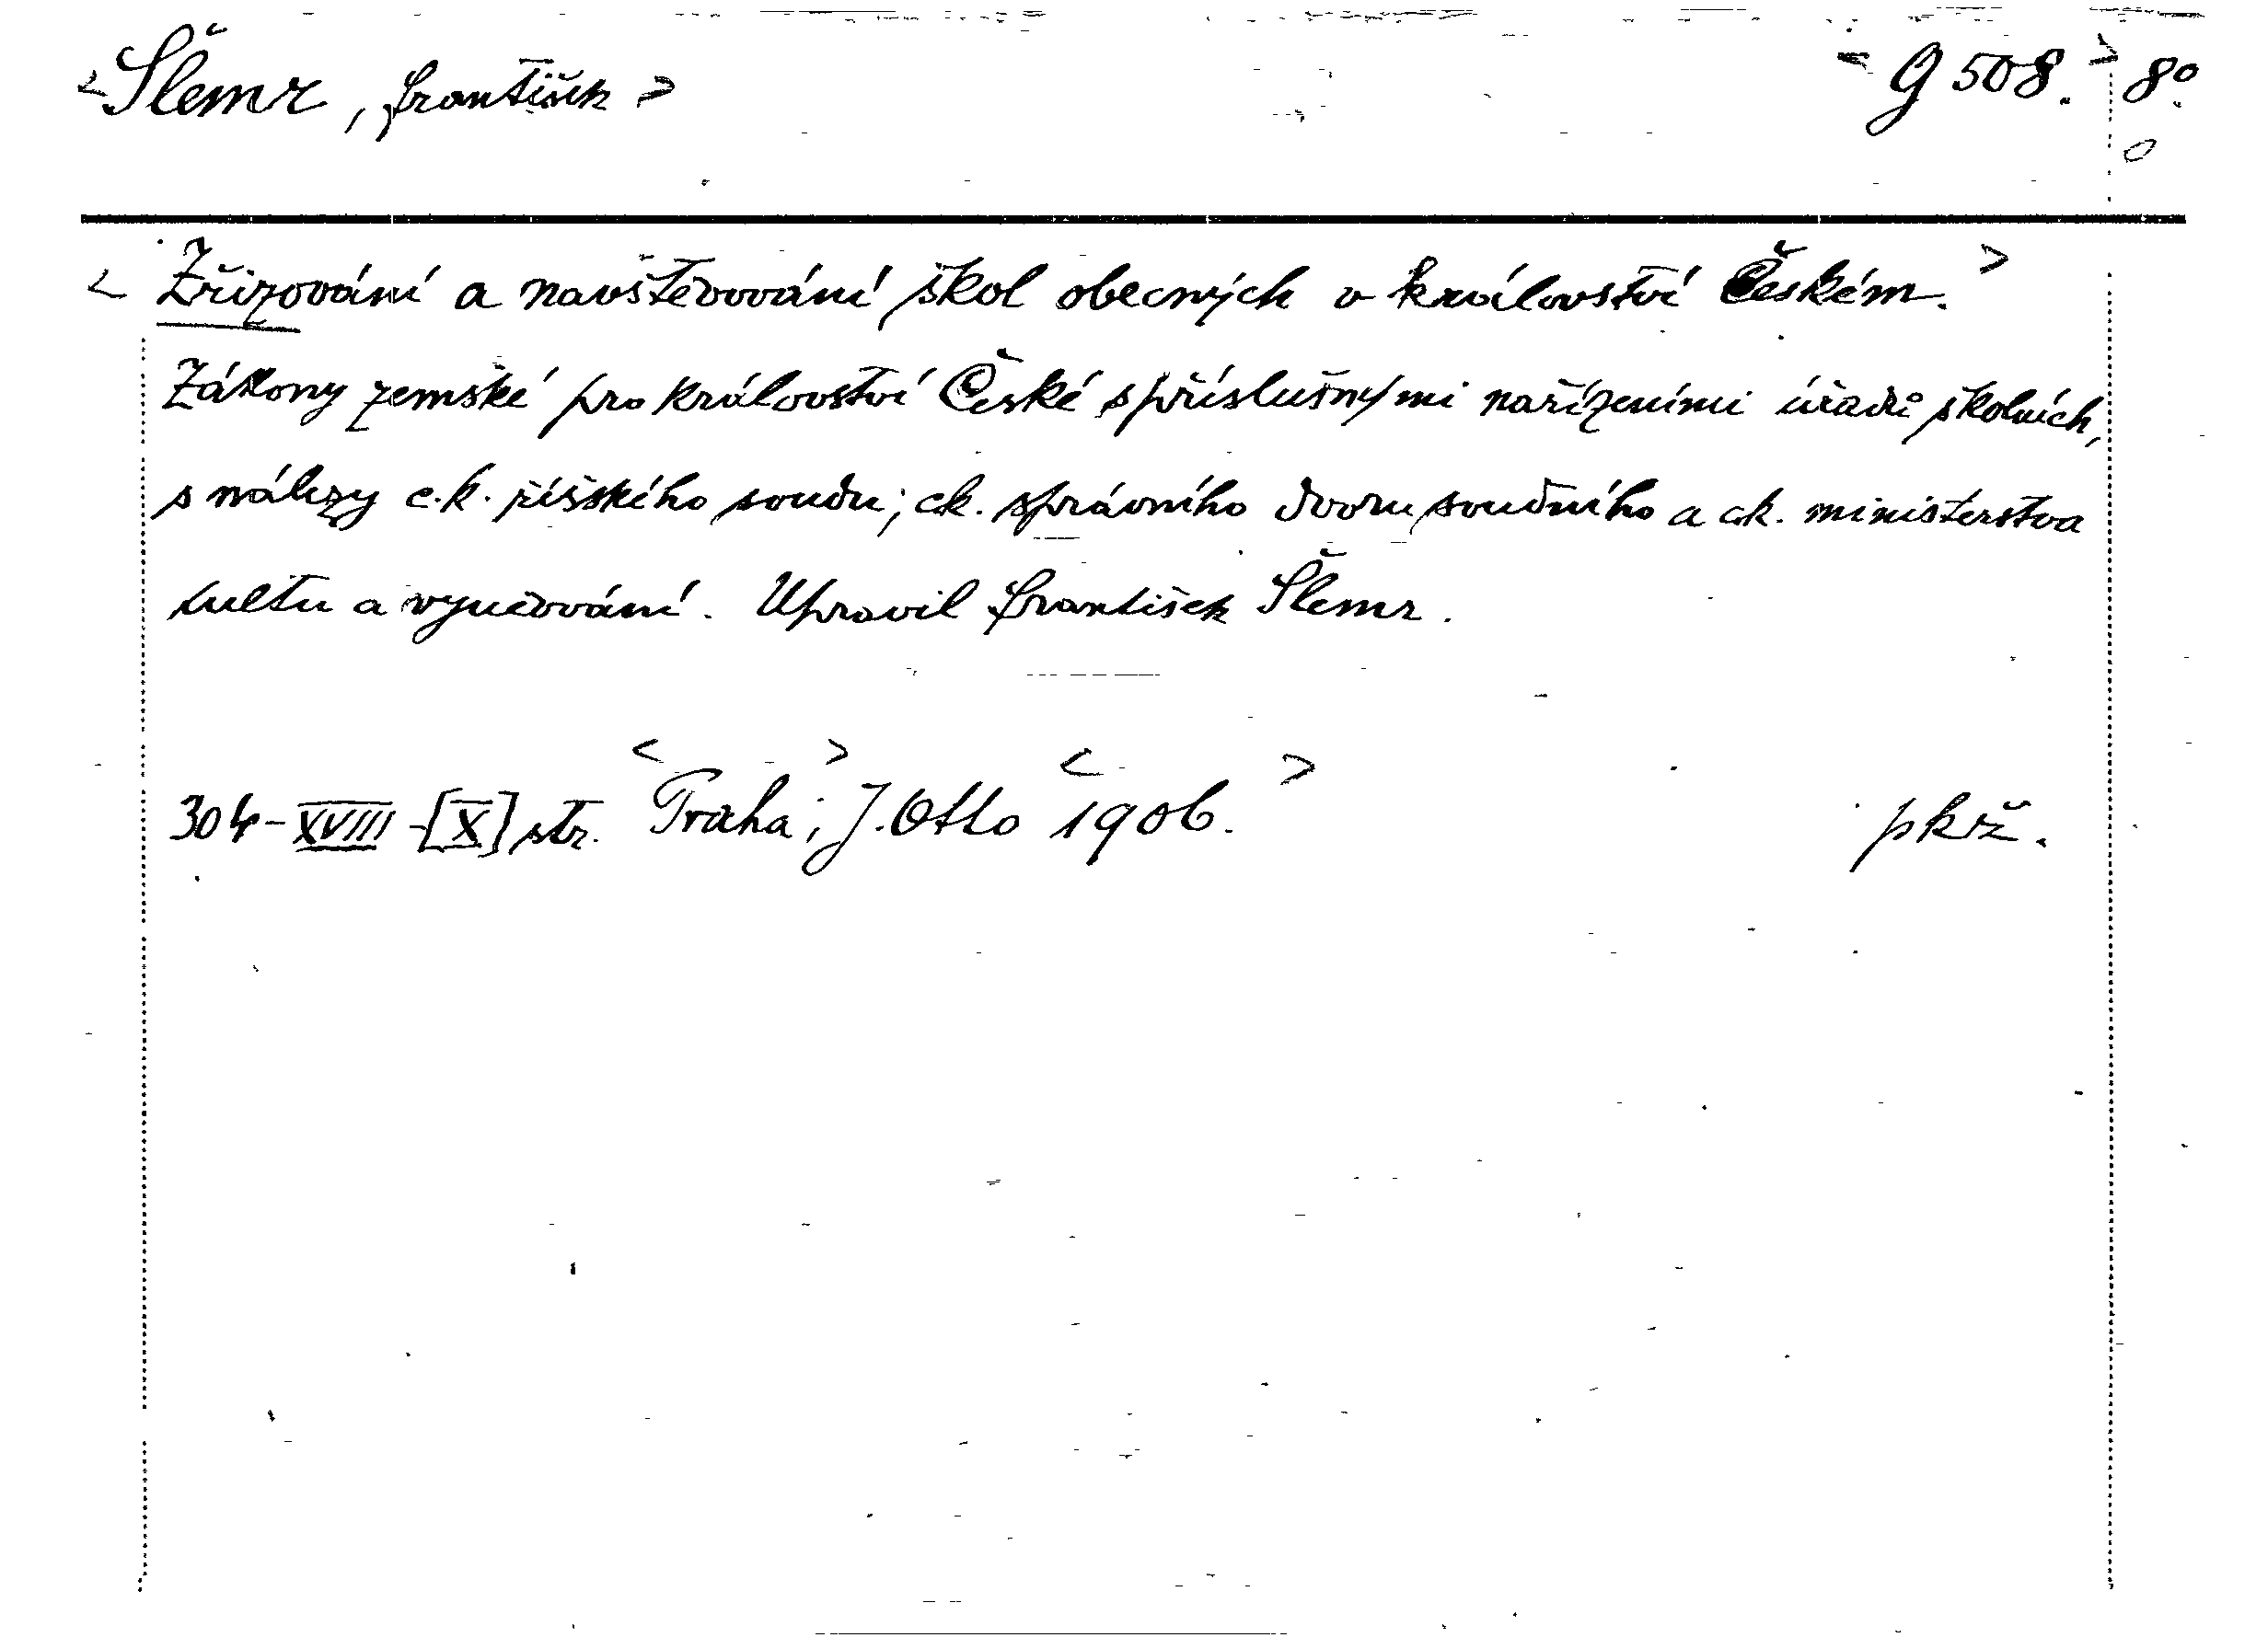 <Šlemr, František> <G 508.> 8º
0
<Zřizování a navštěvování škol obecných v království Českém.>
Zákony zemské pro království České s příslušnými nařízeními úřadů školních,
s nálezy c.k. říšského soudu; ck. správního dvoru soudního a ck. ministerstva
kultu a vyučování. Upravil František Šlemr.
304-XVIII-[X] str. <Praha>; J. Otto <1906.> pkrž.